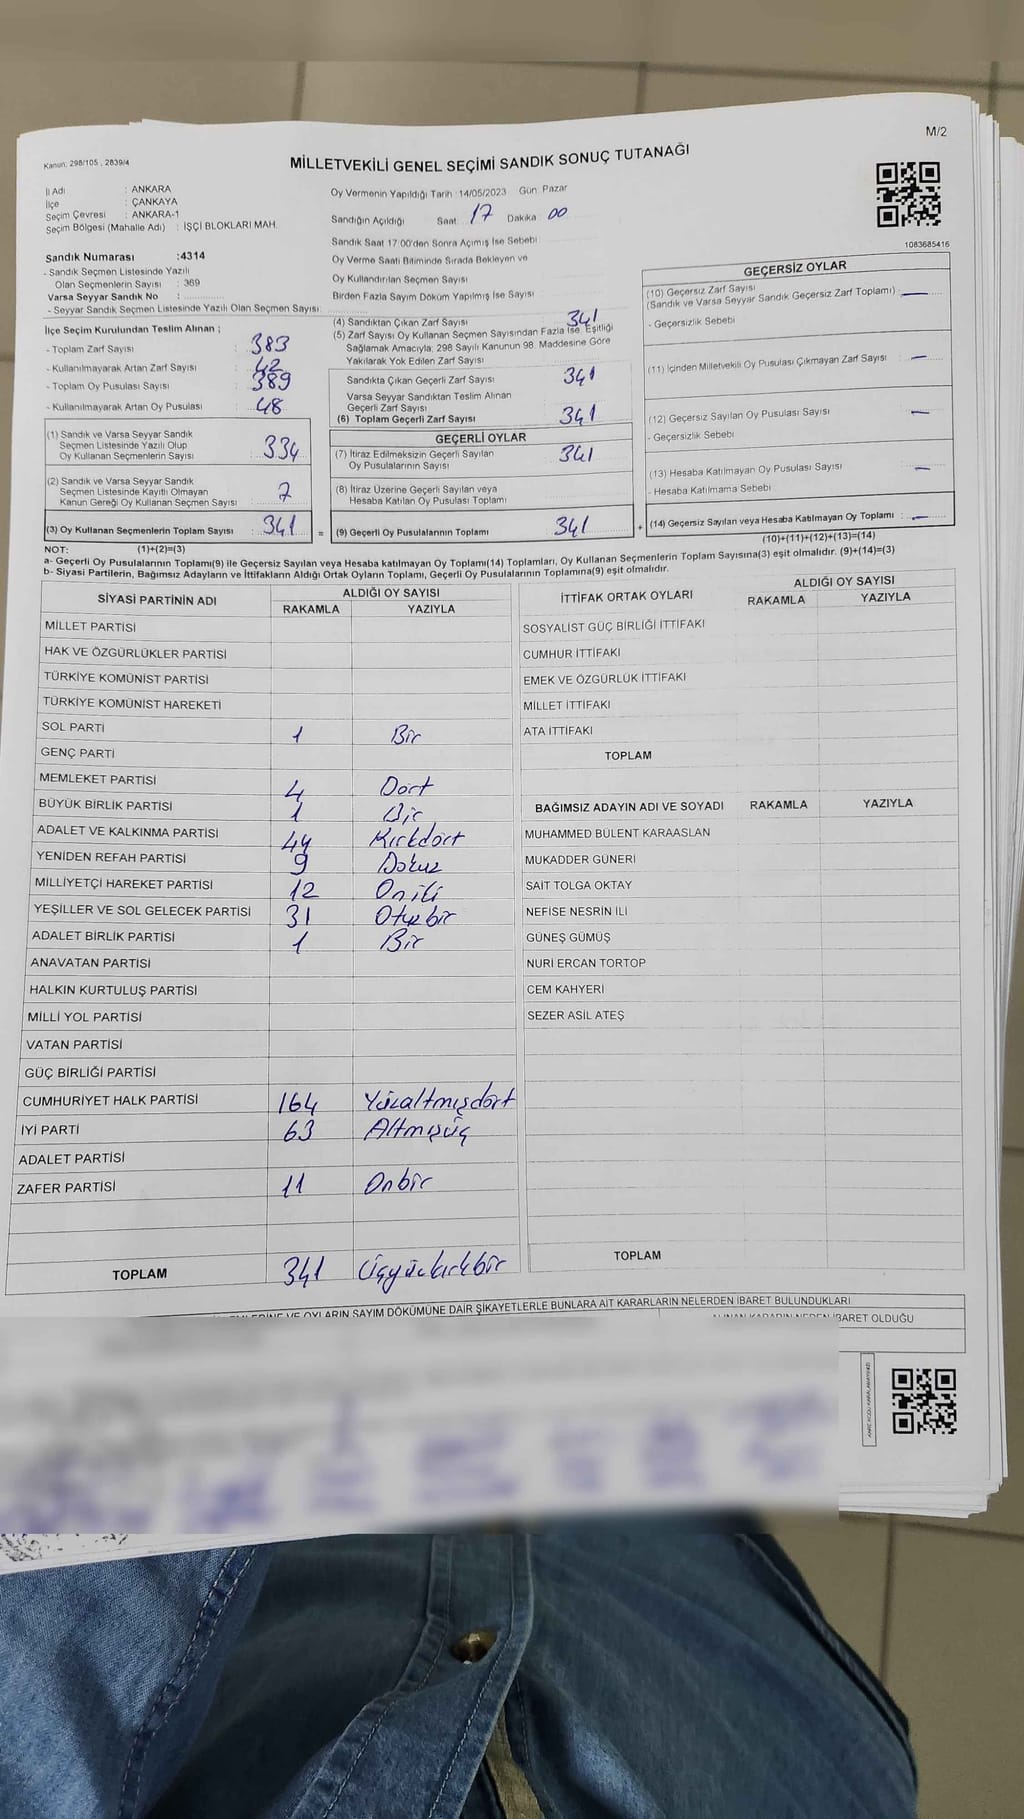 M/2
Kanun: 298/105 , 2839/4
MİLLETVEKİLİ GENEL SEÇİMİ SANDIK SONUÇ TUTANAĞI
İl Adı : ANKARA
İlçe : ÇANKAYA
Seçim Çevresi : ANKARA-1
Seçim Bölgesi (Mahalle Adı) : İŞÇİ BLOKLARI MAH.
Sandık Numarası :4314
- Sandık Seçmen Listesinde Yazılı
Olan Seçmenlerin Sayısı : 369
Varsa Seyyar Sandık No :
- Seyyar Sandık Seçmen Listesinde Yazılı Olan Seçmen Sayısı:
Oy Vermenin Yapıldığı Tarih :14/05/2023 Gün: Pazar
Sandığın Açıldığı Saat: 17 Dakika: 00
Sandık Saat 17:00'den Sonra Açmış İse Sebebi
Oy Verme Saati Bitiminde Sırada Bekleyen ve
Oy Kullandırılan Seçmen Sayısı
Birden Fazla Sayım Döküm Yapılmış İse Sayısı
1083685416
İlçe Seçim Kurulundan Teslim Alınan ;
- Toplam Zarf Sayısı : 383
- Kullanılmayarak Artan Zarf Sayısı : 42
- Toplam Oy Pusulası Sayısı : 389
- Kullanılmayarak Artan Oy Pusulası : 48
(1) Sandık ve Varsa Seyyar Sandık
Seçmen Listesinde Yazılı Olup
Oy Kullanan Seçmenlerin Sayısı : 334
(2) Sandık ve Varsa Seyyar Sandık
Seçmen Listesinde Kayıtlı Olmayan
Kanun Gereği Oy Kullanan Seçmen Sayısı : 7
(3) Oy Kullanan Seçmenlerin Toplam Sayısı : 341
(4) Sandıktan Çıkan Zarf Sayısı 341
(5) Zarf Sayısı Oy Kullanan Seçmen Sayısından Fazla İse, Eşitliği
Sağlamak Amacıyla; 298 Sayılı Kanunun 98. Maddesine Göre
Yakılarak Yok Edilen Zarf Sayısı
Sandıkta Çıkan Geçerli Zarf Sayısı 341
Varsa Seyyar Sandıktan Teslim Alınan
Geçerli Zarf Sayısı
(6) Toplam Geçerli Zarf Sayısı 341
GEÇERLİ OYLAR
(7) İtiraz Edilmeksizin Geçerli Sayılan
Oy Pusulalarının Sayısı 341
(8) İtiraz Üzerine Geçerli Sayılan veya
Hesaba Katılan Oy Pusulası Toplamı
= (9) Geçerli Oy Pusulalarının Toplamı 341
GEÇERSİZ OYLAR
(10) Geçersiz Zarf Sayısı
(Sandık ve Varsa Seyyar Sandık Geçersiz Zarf Toplamı) : —
- Geçersizlik Sebebi :
(11) İçinden Milletvekili Oy Pusulası Çıkmayan Zarf Sayısı : —
(12) Geçersiz Sayılan Oy Pusulası Sayısı : —
- Geçersizlik Sebebi :
(13) Hesaba Katılmayan Oy Pusulası Sayısı : —
- Hesaba Katılmama Sebebi :
+ (14) Geçersiz Sayılan veya Hesaba Katılmayan Oy Toplamı : —
NOT: (1)+(2)=(3)
(10)+(11)+(12)+(13)=(14)
a- Geçerli Oy Pusulalarının Toplamı(9) ile Geçersiz Sayılan veya Hesaba katılmayan Oy Toplamı(14) Toplamları, Oy Kullanan Seçmenlerin Toplam Sayısına(3) eşit olmalıdır. (9)+(14)=(3)
b- Siyasi Partilerin, Bağımsız Adayların ve İttifakların Aldığı Ortak Oyların Toplamı, Geçerli Oy Pusulalarının Toplamına(9) eşit olmalıdır.
SİYASİ PARTİNİN ADI ALDIĞI OY SAYISI
RAKAMLA YAZIYLA
MİLLET PARTİSİ
HAK VE ÖZGÜRLÜKLER PARTİSİ
TÜRKİYE KOMÜNİST PARTİSİ
TÜRKİYE KOMÜNİST HAREKETİ
SOL PARTİ 1 Bir
GENÇ PARTİ
MEMLEKET PARTİSİ 4 Dört
BÜYÜK BİRLİK PARTİSİ 1 Bir
ADALET VE KALKINMA PARTİSİ 44 Kırkdört
YENİDEN REFAH PARTİSİ 9 Dokuz
MİLLİYETÇİ HAREKET PARTİSİ 12 Oniki
YEŞİLLER VE SOL GELECEK PARTİSİ 31 Otuzbir
ADALET BİRLİK PARTİSİ 1 Bir
ANAVATAN PARTİSİ
HALKIN KURTULUŞ PARTİSİ
MİLLİ YOL PARTİSİ
VATAN PARTİSİ
GÜÇ BİRLİĞİ PARTİSİ
CUMHURİYET HALK PARTİSİ 164 Yüzaltmışdört
İYİ PARTİ 63 Altmışüç
ADALET PARTİSİ
ZAFER PARTİSİ 11 Onbir
TOPLAM 341 Üçyüzkırkbir
İTTİFAK ORTAK OYLARI ALDIĞI OY SAYISI
RAKAMLA YAZIYLA
SOSYALİST GÜÇ BİRLİĞİ İTTİFAKI
CUMHUR İTTİFAKI
EMEK VE ÖZGÜRLÜK İTTİFAKI
MİLLET İTTİFAKI
ATA İTTİFAKI
TOPLAM
BAĞIMSIZ ADAYIN ADI VE SOYADI RAKAMLA YAZIYLA
MUHAMMED BÜLENT KARAASLAN
MUKADDER GÜNERİ
SAİT TOLGA OKTAY
NEFİSE NESRİN İLİ
GÜNEŞ GÜMÜŞ
NURİ ERCAN TORTOP
CEM KAHYERİ
SEZER ASİL ATEŞ
TOPLAM
VE OYLARIN SAYIM DÖKÜMÜNE DAİR ŞİKAYETLERLE BUNLARA AİT KARARLARIN NELERDEN İBARET BULUNDUKLARI
ALINAN KARARIN NEDEN İBARET OLDUĞU